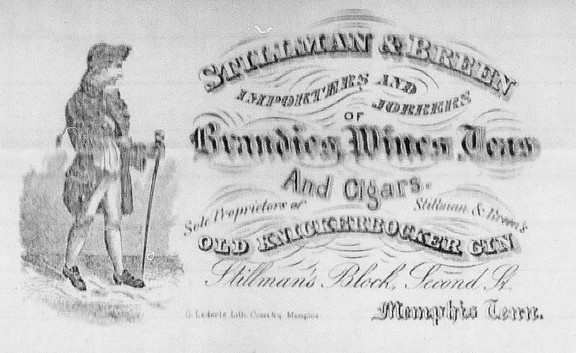 STILLMAN & BREEN
IMPORTERS AND
JOBBERS
OF
Brandies, Wines, Teas
And Cigars.
Sole Proprietors of Stillman & Breen's
OLD KNICKERBOCKER GIN
Stillman's Block, Second St.
Memphis Tenn.
Lederle Lith. Memphis